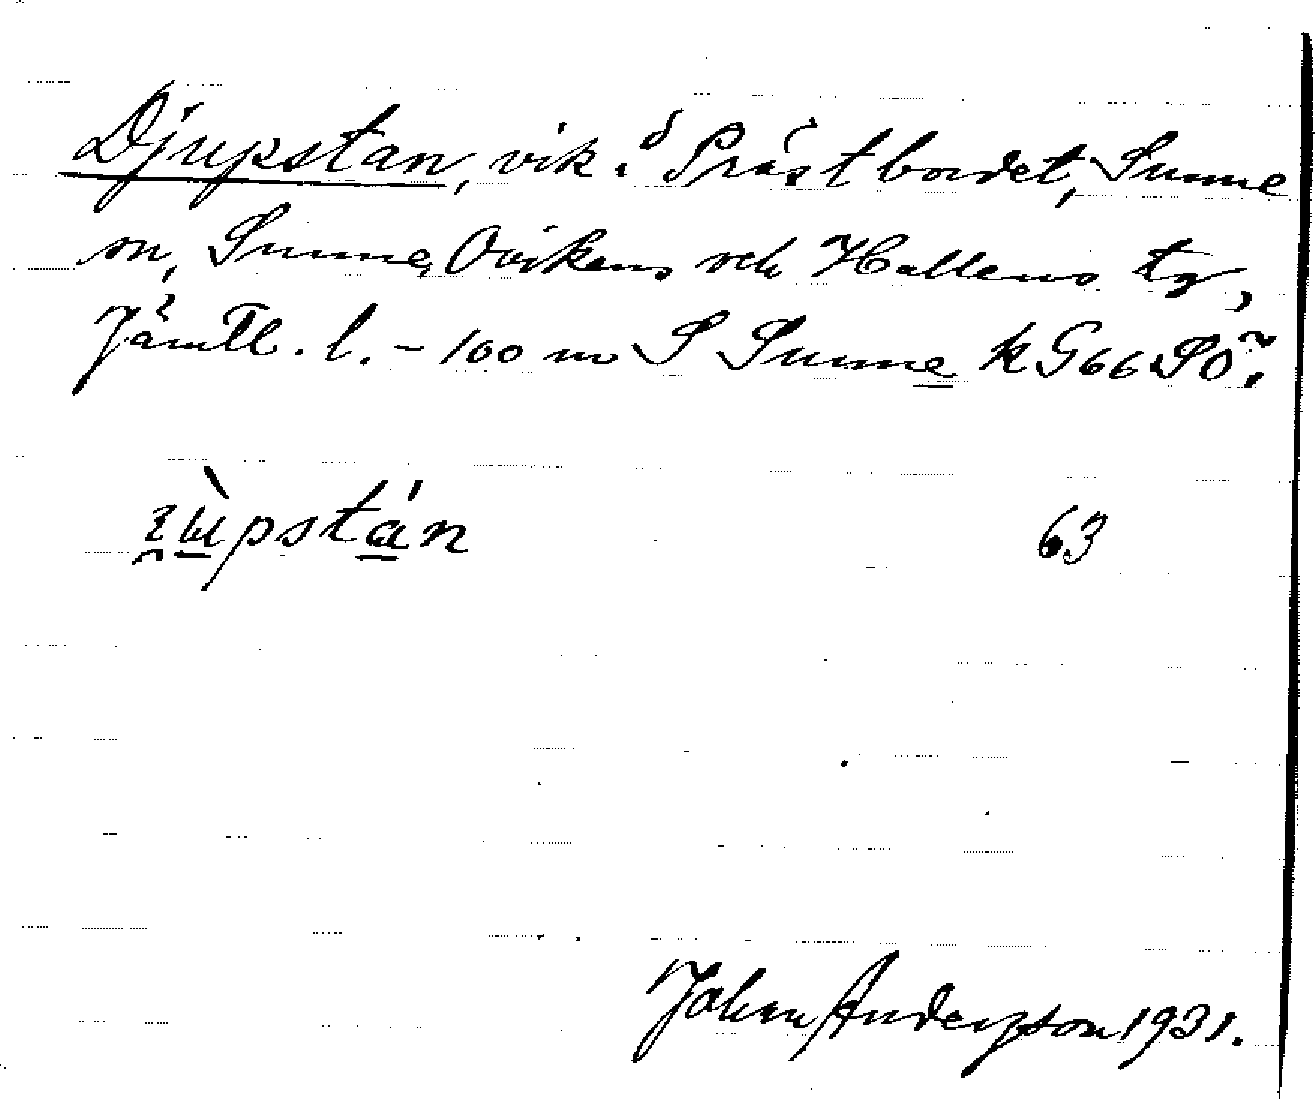 Djupstan, vik. å Prästbordet, Sunne
sn, Sunne, Ovikens och Hallens tg,
Jämtl. l. - 100 m S Sunne k G66 SO.
63
Johan Andersson 1931.